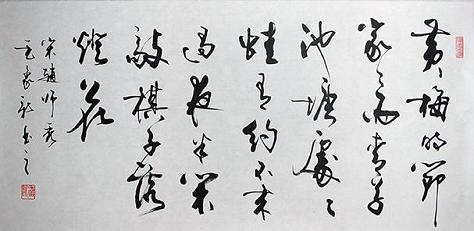 黄梅時節
家々雨青草
池塘處々
蛙有約不来
過夜半閑
敲棋子落
燈花
宋趙師秀
書之